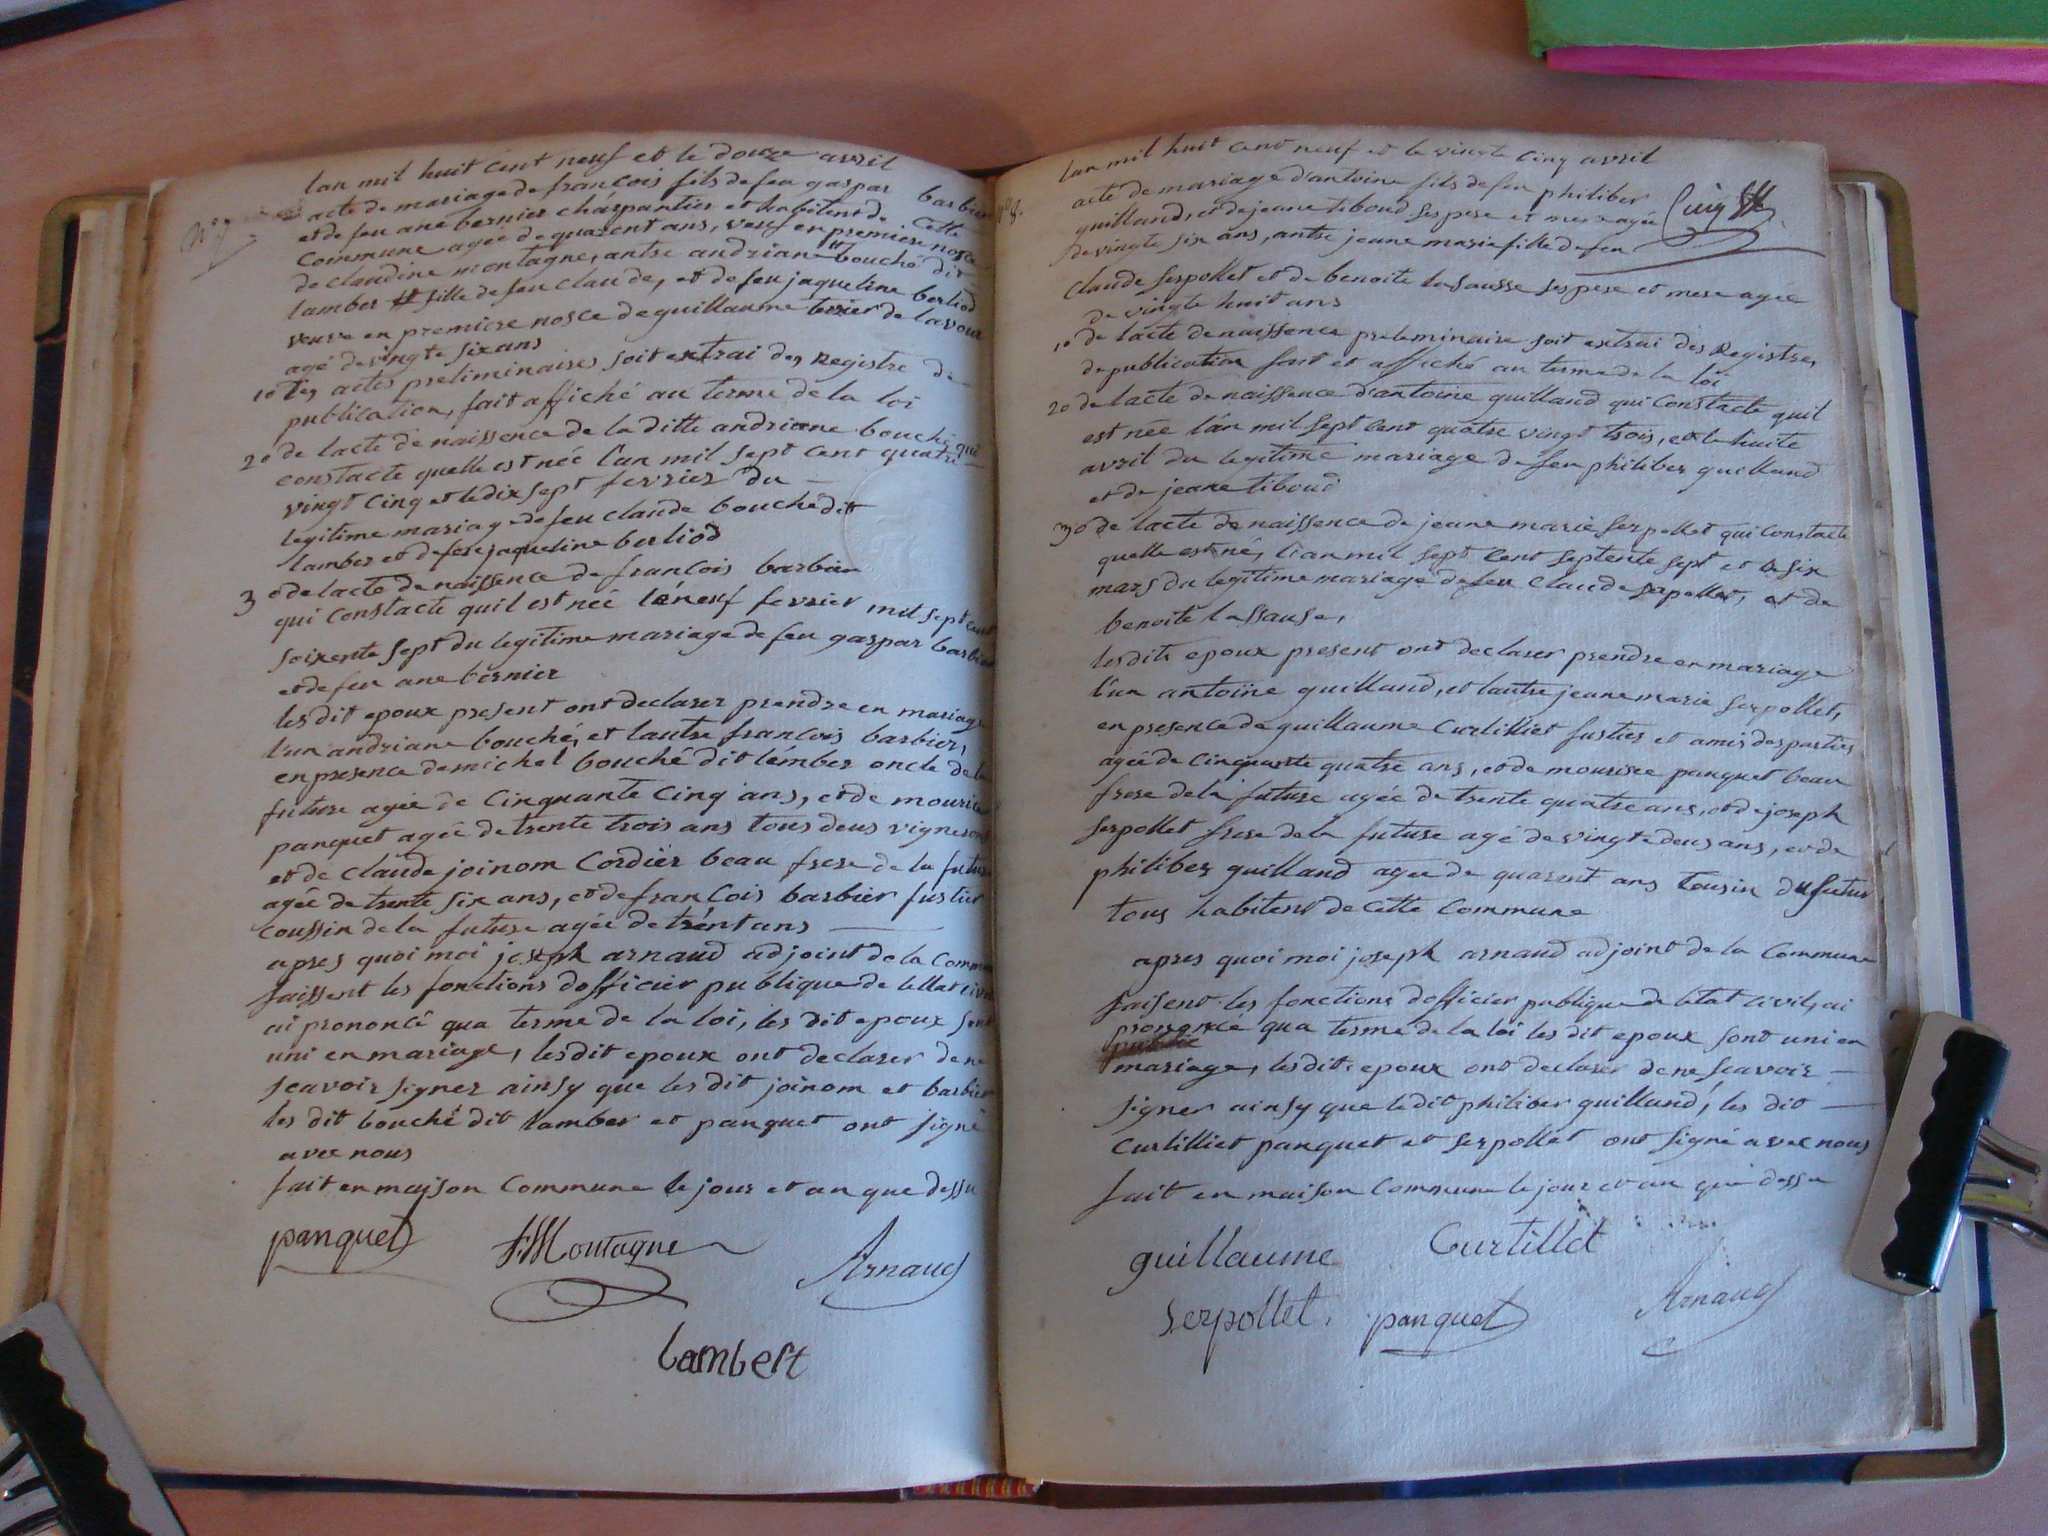 lan mil huit cent neuf et le douze avril
N° 7
acte de mariage de francois fils de feu gaspar barbier
et de feu ane bernier charpantier et habitent de Cette
Commune agée de quarent ans, veuf en premiere nosce
de claudine montagne, antre andriane bouché dit
lamber fille de feu claude, et de feu jaqueline berliod
veuve en premiere nosce de guillaume terrier de lavour
agé de vingte six ans
1o des actes preliminaires soit extrai des Registre de
publication, fait affiché au terme de la loi
2o de lacte de naissence de la ditte andriane bouché qui
constacte quelle est née l'an mil sept cent quatre
vingt cinq et le dix sept fevrier du
legitime mariage de feu claude bouche dit
lamber et de feu jaqueline berliod
3o de lacte de naissence de francois barbier
qui constacte quil est née le neuf fevrier mil sept cent
soixente sept du legitime mariage de feu gaspar barbier
et de feu ane bernier
les dit epoux present ont declarer prendre en mariage
l'un andriane bouché, et lautre francois barbier,
en presence de michel bouché dit lember oncle de la
future agée de Cinquante Cinq ans, et de mourice
panquet agée de trente trois ans tous deus vignerons
et de Claude joinom Cordier beau frere de la future
agée de trente six ans, et de francois barbier fustier
coussin de la future agée de trent ans
apres quoi moi joseph arnaud adjoint de la Commune
faissent les fonctions dofficier publique de lettat civil
ai prononcé qua terme de la loi, les dit epoux sont
uni en mariage, les dit epoux ont declarer de ne
scavoir signer ainsy que les dit joinom et barbier
les dit bouché dit lamber et panquet ont signé
avec nous
fait en maison Commune le jour et an que dessu
panquet Montagne Arnaud
Lambert
lan mil huit cent neuf et le vingte cinq avril
N° 8.
acte de mariage d'antoine fils de feu philiber
guilland, et de jeane tiboud ses pere et mere agée
de vingte six ans, antre jeane marie fille de feu
Claude Serpollet et de benoite lasausse ses pere et mere agée
de vingte huit ans
1o de lacte de naissence preleminaire soit extrai des Registres
de publication fait et affiché au terme de la loi
2o de lacte de naissence d'antoine guilland qui Constacte quil
est née l'an mil sept cent quatre vingt trois, et le huite
avril du legitime mariage de feu philiber guilland
et de jeane tiboud
3o de lacte de naissence de jeane marie Serpollet qui Constacte
quelle est né, l'an mil sept cent septente sept et le six
mars du legitime mariage de feu Claude serpollet, et de
benoite lassause,
les dits epoux present ont declarer prendre en mariage
l'un antoine guilland, et lautre jeane marie Serpollet,
en presence de guillaume Curtilliet fustier et amis des parties
agée de Cinquante quatre ans, et de mourisce panquet beau
frere de la future agée de trente quatre ans, et de joseph
Serpollet frere de la future agé de vingte deus ans, et de
philiber guilland agée de quarent ans Cousin du futur
tous habitent de cette Commune
apres quoi moi joseph arnaud adjoint de la Commune
faisent les fonctions dofficier publique de letat Civil, ai
prononcé qua terme de la loi les dit epoux sont uni en
mariage, les dits epoux ont declarer de ne scavoir
signer ainsy que le dit philiber guilland, les dit
Curtilliet panquet et Serpollet ont signé avec nous
fait en maison Commune le jour et an que dessu
guillaume Curtillet
Serpollet, panquet Arnaud